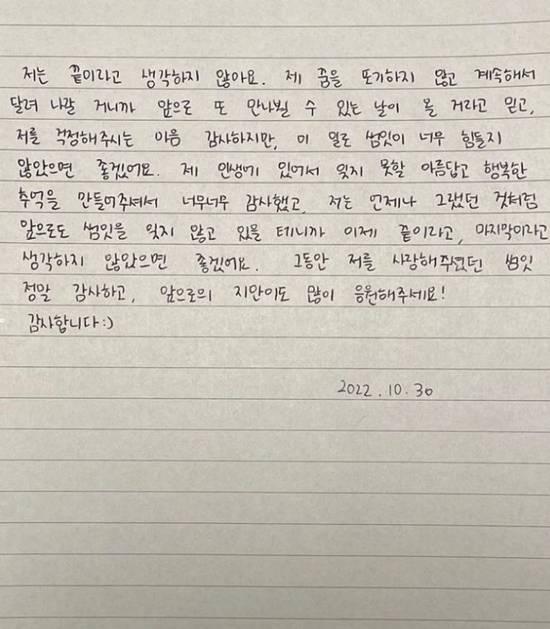 저는 끝이라고 생각하지 않아요. 제 꿈을 포기하지 않고 계속해서
달려 나갈 거니까 앞으로 또 만나뵐 수 있는 날이 올 거라고 믿고,
저를 걱정해주시는 마음 감사하지만, 이 일로 썸잇이 너무 힘들지
않았으면 좋겠어요. 제 인생에 있어서 잊지 못할 아름답고 행복한
추억을 만들어주셔서 너무너무 감사했고, 저는 언제나 그랬던 것처럼
앞으로도 썸잇을 잊지 않고 있을 테니까 이제 끝이라고, 마지막이라고
생각하지 않았으면 좋겠어요. 그동안 저를 사랑해주셨던 썸잇
정말 감사하고, 앞으로의 지안이도 많이 응원해주세요!
감사합니다:)
2022.10.30